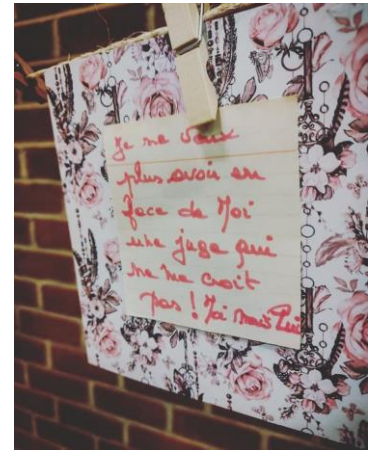 Je ne veux
plus avoir en
face de Moi
une juge qui
ne me croit
pas ! Moi mais Lui